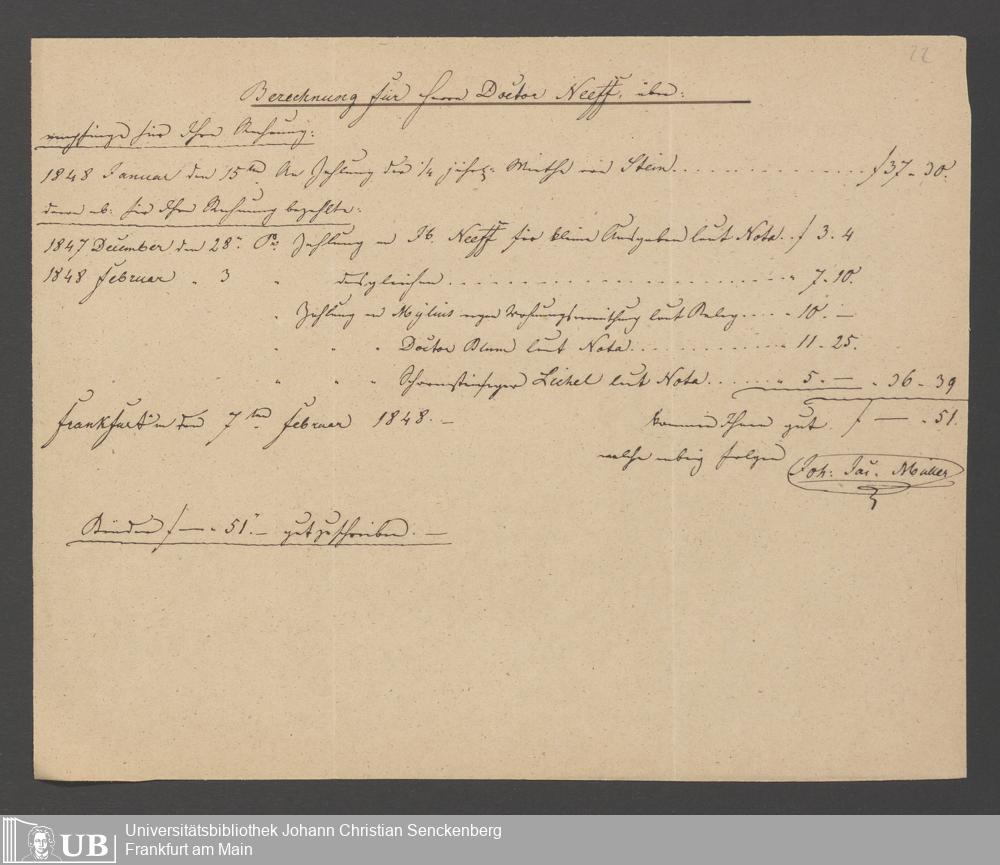 22
Berechnung für Herrn Doctor Neeff, über:
empfinge für Ihre Rechnung:
1848 Januar den 15ten An Zahlung der 1/4 jährl: Miethe von Stein f 37 - 30.
dann ab: für Ihre Rechnung bezahlte:
1847 December den 28n Pr: Zahlung an Neeff für kleine Ausgaben laut Nota f 3 - 4
1848 Februar " 3 " desgleichen " 7 - 10.
" Zahlung an Mylius wegen laut Beleg " 10. —
" " " Doctor Blum laut Nota " 11 - 25.
" " " Schornsteinfeger Lickel laut Nota " 5. — " 36 - 39
Frankfurt a/m den 7ten Februar 1848. — kommen Ihnen gut f — " 51.
welche folgen Joh: Jac. Müller
f — " 51. — gutzuschreiben. —
Universitätsbibliothek Johann Christian Senckenberg
Frankfurt am Main
UB